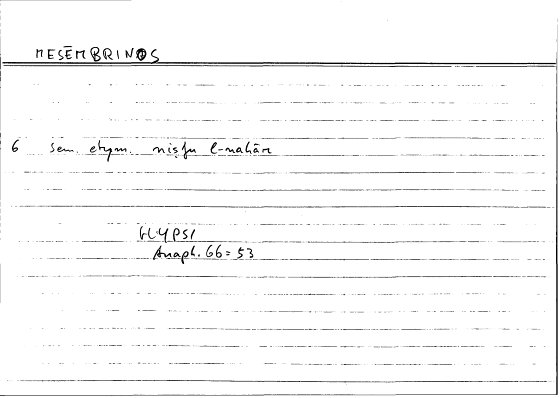 MESĒMBRINOS
6 sem. etym. niṣfu l-nahār
HYPSI
Anaph. 66 = 53